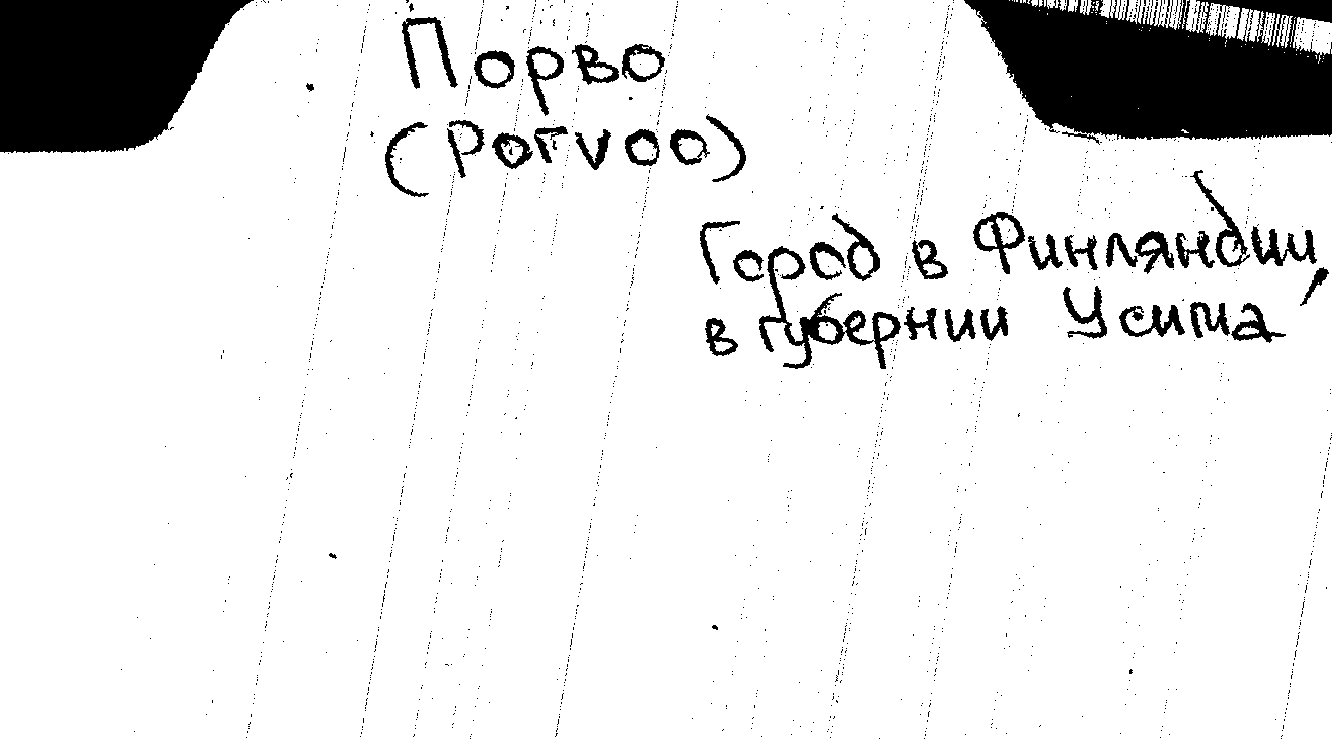 Порво
(Porvoo)
Город в Финляндии,
в губернии Усима